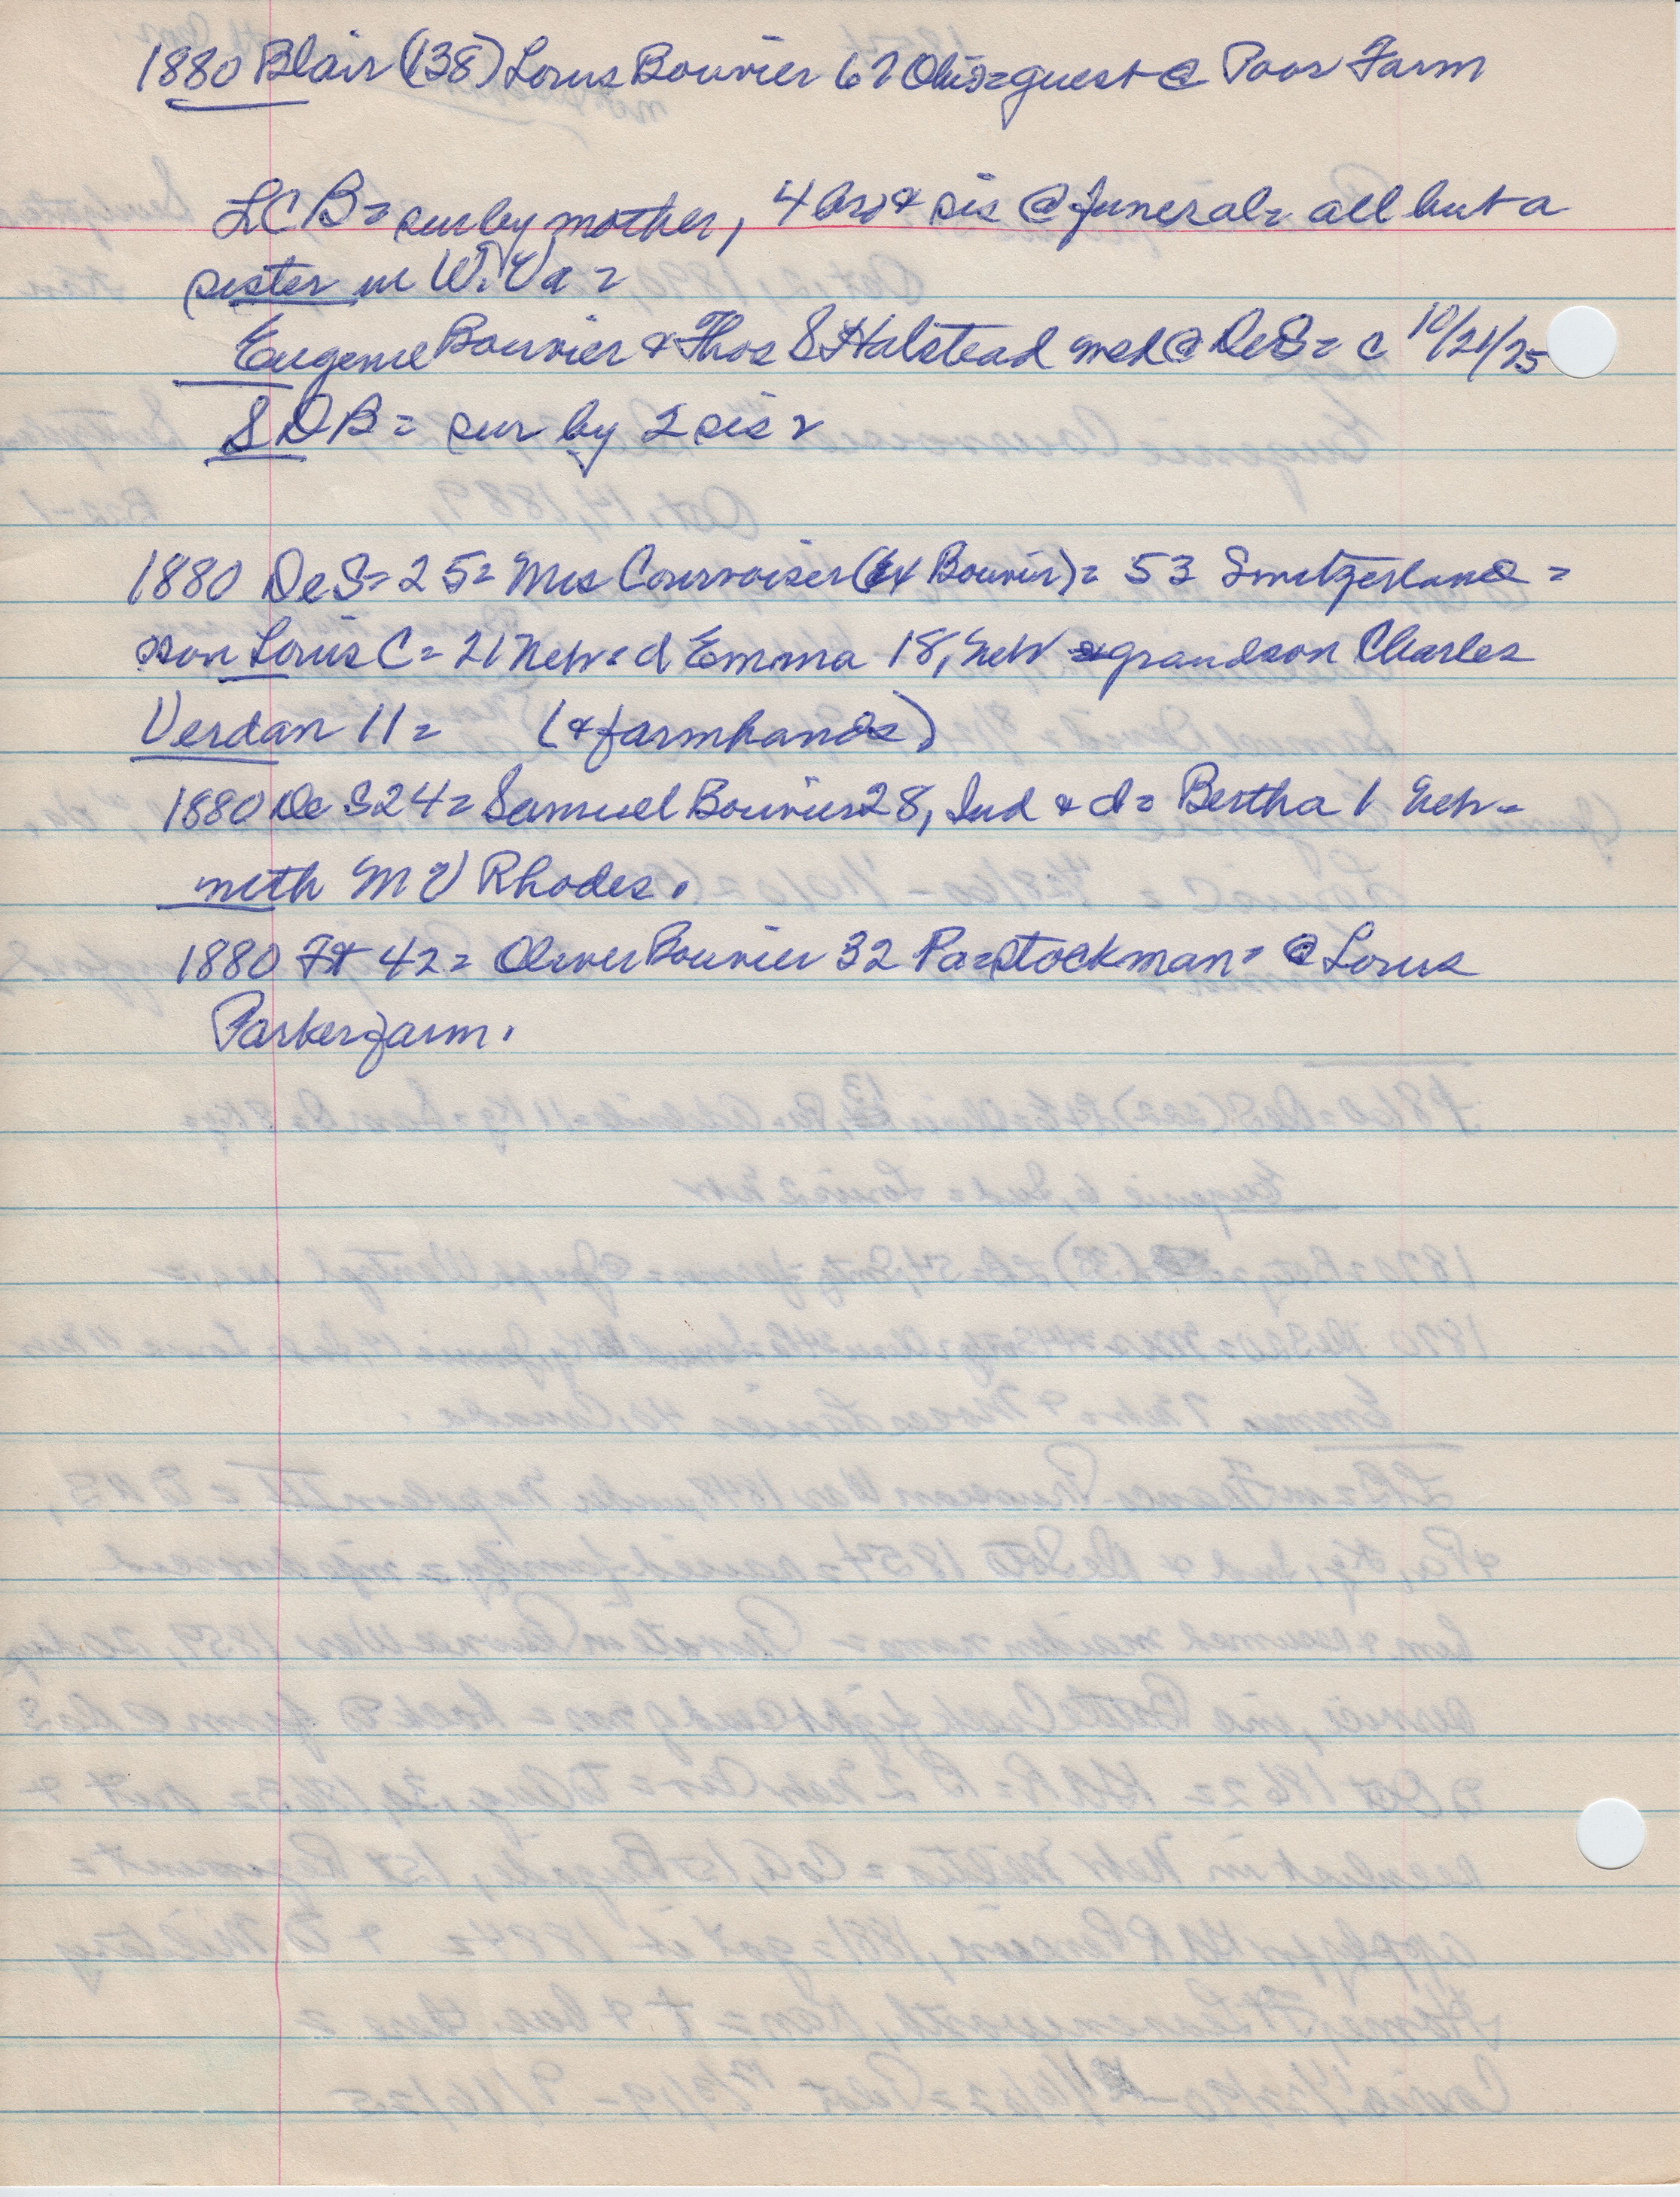 1880 Blair (138) Louis Bouvier 67 Ohio= guest @ Poor Farm
LCB= sur by mother, 4 bro & sis @ funeral= all but a
sister in W. Va =
Eugenie Bouvier & Thos S Halstead med @ DeS= c 10/21/25
SDB= sur by 2 sis =
1880 DeS= 25= Mrs Courvoiser (Bouvier)= 53 Switzerland =
son Louis C= 21 Neb= d Emma 18, Neb grandson Charles
Verdan 11= (& farmhands)
1880 De S 24= Samuel Bouvier 28, Ind & d= Bertha 1 Neb=
with M V Rhodes.
1880 Ft 42= Oliver Bouvier 32 Pa= stockman= @ Louis
Parker farm.